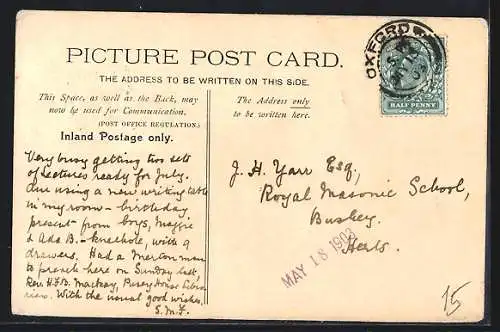 PICTURE POST CARD.
THE ADDRESS TO BE WRITTEN ON THIS SIDE.
This Space, as well as the Back, may
now be used for Communication.
(POST OFFICE REGULATION.)
Inland Postage only.
The Address only
to be written here.
OXFORD
HALF PENNY
Very busy getting two sets
of Lectures ready for July.
Am using a new writing table
in my room – birthday
present – from boys, Maggie
& Ada B. – kneehole, with 9
drawers. Had a Merton man
to preach here on Sunday last,
Rev. H.F.B. Mackay, Pusey House Libra-
rian. With the usual good wishes,
S.M.F.
J. H. Yarr Esq.,
Royal Masonic School,
Bushey.
Herts.
MAY 18 1903
15